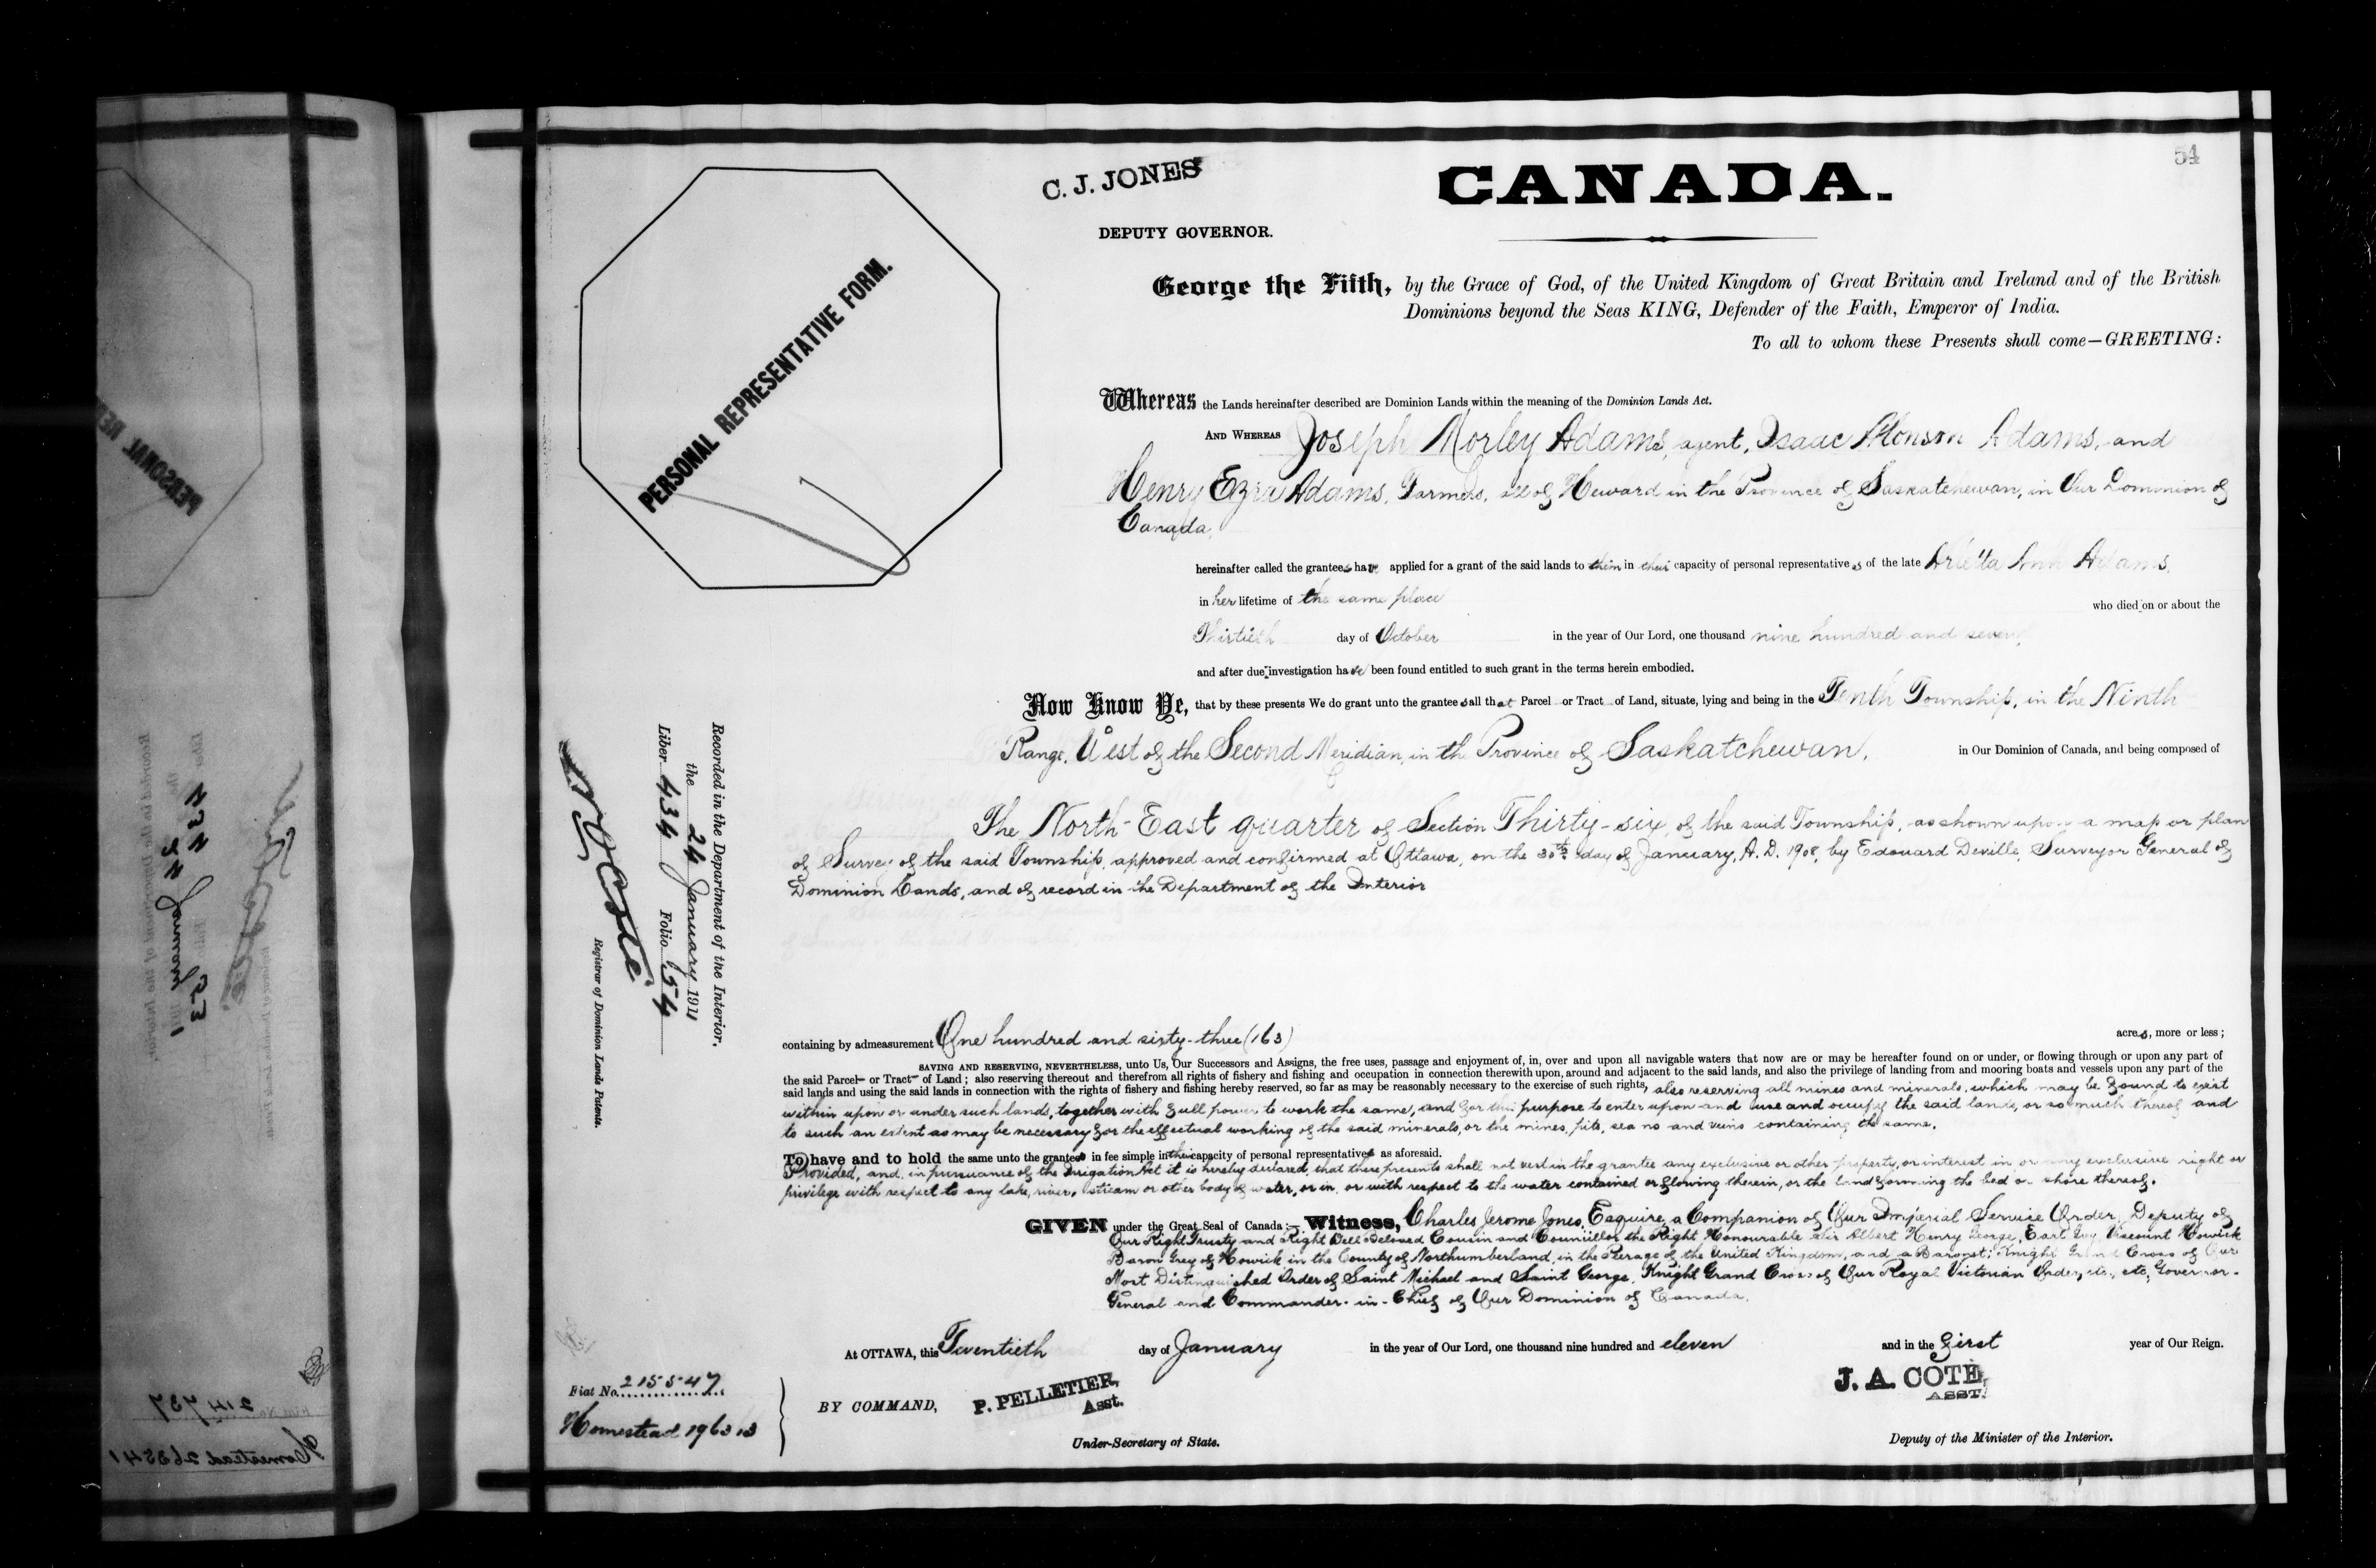 54
C. J. JONES
CANADA.
DEPUTY GOVERNOR.
George the Fifth, by the Grace of God, of the United Kingdom of Great Britain and Ireland and of the British
Dominions beyond the Seas KING, Defender of the Faith, Emperor of India.
To all to whom these Presents shall come—GREETING:
PERSONAL REPRESENTATIVE FORM.
Whereas the Lands hereinafter described are Dominion Lands within the meaning of the Dominion Lands Act.
AND WHEREAS Joseph Morley Adams, agent, Isaac Adams, and
Henry Ezra Adams, Farmers, all of Heward in the Province of Saskatchewan, in Our Dominion of
Canada,
hereinafter called the grantees have applied for a grant of the said lands to them in their capacity of personal representatives of the late Arletta Ann Adams,
in her lifetime of the same place
who died on or about the
Thirtieth day of October in the year of Our Lord, one thousand nine hundred and seven,
and after due investigation have been found entitled to such grant in the terms herein embodied.
Now Know Ye, that by these presents We do grant unto the grantees all that Parcel or Tract of Land, situate, lying and being in the Tenth Township, in the Ninth
Range, West of the Second Meridian, in the Province of Saskatchewan, in Our Dominion of Canada, and being composed of
The North-East quarter of Section Thirty-six, of the said Township, as shown upon a map or plan
of Survey of the said Township, approved and confirmed at Ottawa, on the 30th day of January, A. D. 1908, by Edouard Deville, Surveyor General of
Dominion Lands, and of record in the Department of the Interior
Recorded in the Department of the Interior.
the 24 January 1911
Liber 434 Folio 54
Registrar of Dominion Lands Patents.
containing by admeasurement One hundred and sixty-three (163) acres, more or less;
SAVING AND RESERVING, NEVERTHELESS, unto Us, Our Successors and Assigns, the free uses, passage and enjoyment of, in, over and upon all navigable waters that now are or may be hereafter found on or under, or flowing through or upon any part of
the said Parcel or Tract of Land; also reserving thereout and therefrom all rights of fishery and fishing and occupation in connection therewith upon, around and adjacent to the said lands, and also the privilege of landing from and mooring boats and vessels upon any part of the
said lands and using the said lands in connection with the rights of fishery and fishing hereby reserved, so far as may be reasonably necessary to the exercise of such rights, also reserving all mines and minerals, which may be found to exist
within upon or under such lands, together with full power to work the same, and for this purpose to enter upon and use and occupy the said lands, or so much thereof and
to such an extent as may be necessary for the effectual working of the said minerals, or the mines, pits, seams and veins containing the same.
To have and to hold the same unto the grantees in fee simple in their capacity of personal representatives as aforesaid.
Provided, and in pursuance of the Irrigation Act it is hereby declared, that these presents shall not vest in the grantee any exclusive or other property, or interest in or any exclusive right or
privilege with respect to any lake, river, stream or other body of water, or in, or with respect to the water contained or flowing therein, or the land forming the bed or shore thereof.
GIVEN under the Great Seal of Canada:—Witness, Charles Jerome Jones, Esquire, a Companion of Our Imperial Service Order, Deputy of
Our Right Trusty and Right Well-Beloved Cousin and Councillor the Right Honourable Sir Albert Henry George, Earl Grey, Viscount Howick
Baron Grey of Howick in the County of Northumberland, in the Peerage of the United Kingdom, and a Baronet; Knight Grand Cross of Our
Most Distinguished Order of Saint Michael and Saint George, Knight Grand Cross of Our Royal Victorian Order, etc., etc., Governor-
General and Commander-in-Chief of Our Dominion of Canada.
At OTTAWA, this Twentieth day of January in the year of Our Lord, one thousand nine hundred and eleven and in the first year of Our Reign.
Fiat No. 215547
BY COMMAND,
P. PELLETIER,
Asst.
J. A. COTÉ,
ASST.
Homestead
Under-Secretary of State.
Deputy of the Minister of the Interior.